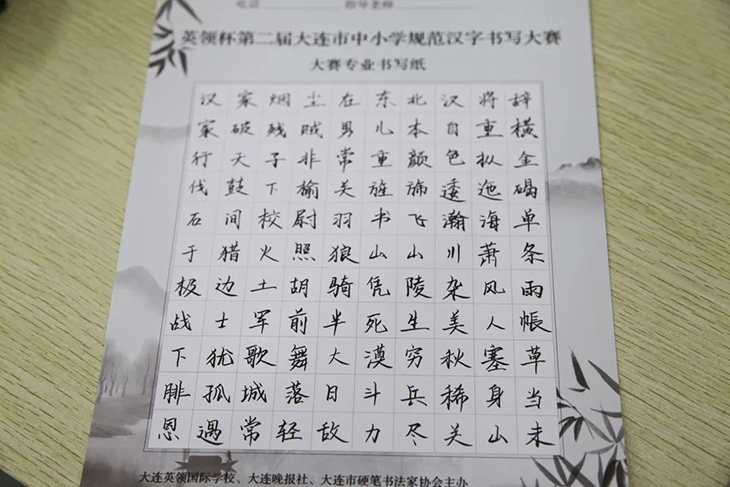 电话 指导老师
英领杯第二届大连市中小学规范汉字书写大赛
大赛专业书写纸
汉家烟尘在东北汉将辞
家破残贼男儿本自重横
行天子非常重颜色枞金
伐鼓下榆关旌旆逶迤碣
石间校尉羽书飞瀚海单
于猎火照狼山山川萧条
极边土胡骑凭陵杂风雨
战士军前半死生美人帐
下犹歌舞大漠穷秋塞草
腓孤城落日斗兵稀身当
恩遇常轻敌力尽关山未
大连英领国际学校、大连晚报社、大连市硬笔书法家协会主办